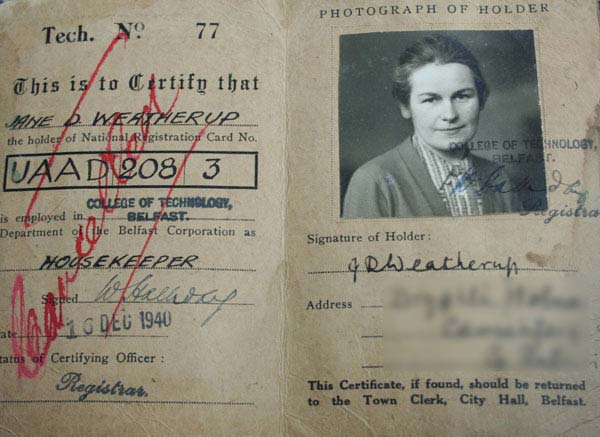 Tech. No. 77
This is to Certify that
JANE D. WEATHERUP
the holder of National Registration Card No.
UAAD 208 3
is employed in COLLEGE OF TECHNOLOGY,
BELFAST.
Department of the Belfast Corporation as
HOUSEKEEPER
Signed
Date 16 DEC 1940
Status of Certifying Officer :
Registrar.
Cancelled
PHOTOGRAPH OF HOLDER
COLLEGE OF TECHNOLOGY,
BELFAST.
Registrar
Signature of Holder :
J D Weatherup
Address
This Certificate, if found, should be returned
to the Town Clerk, City Hall, Belfast.